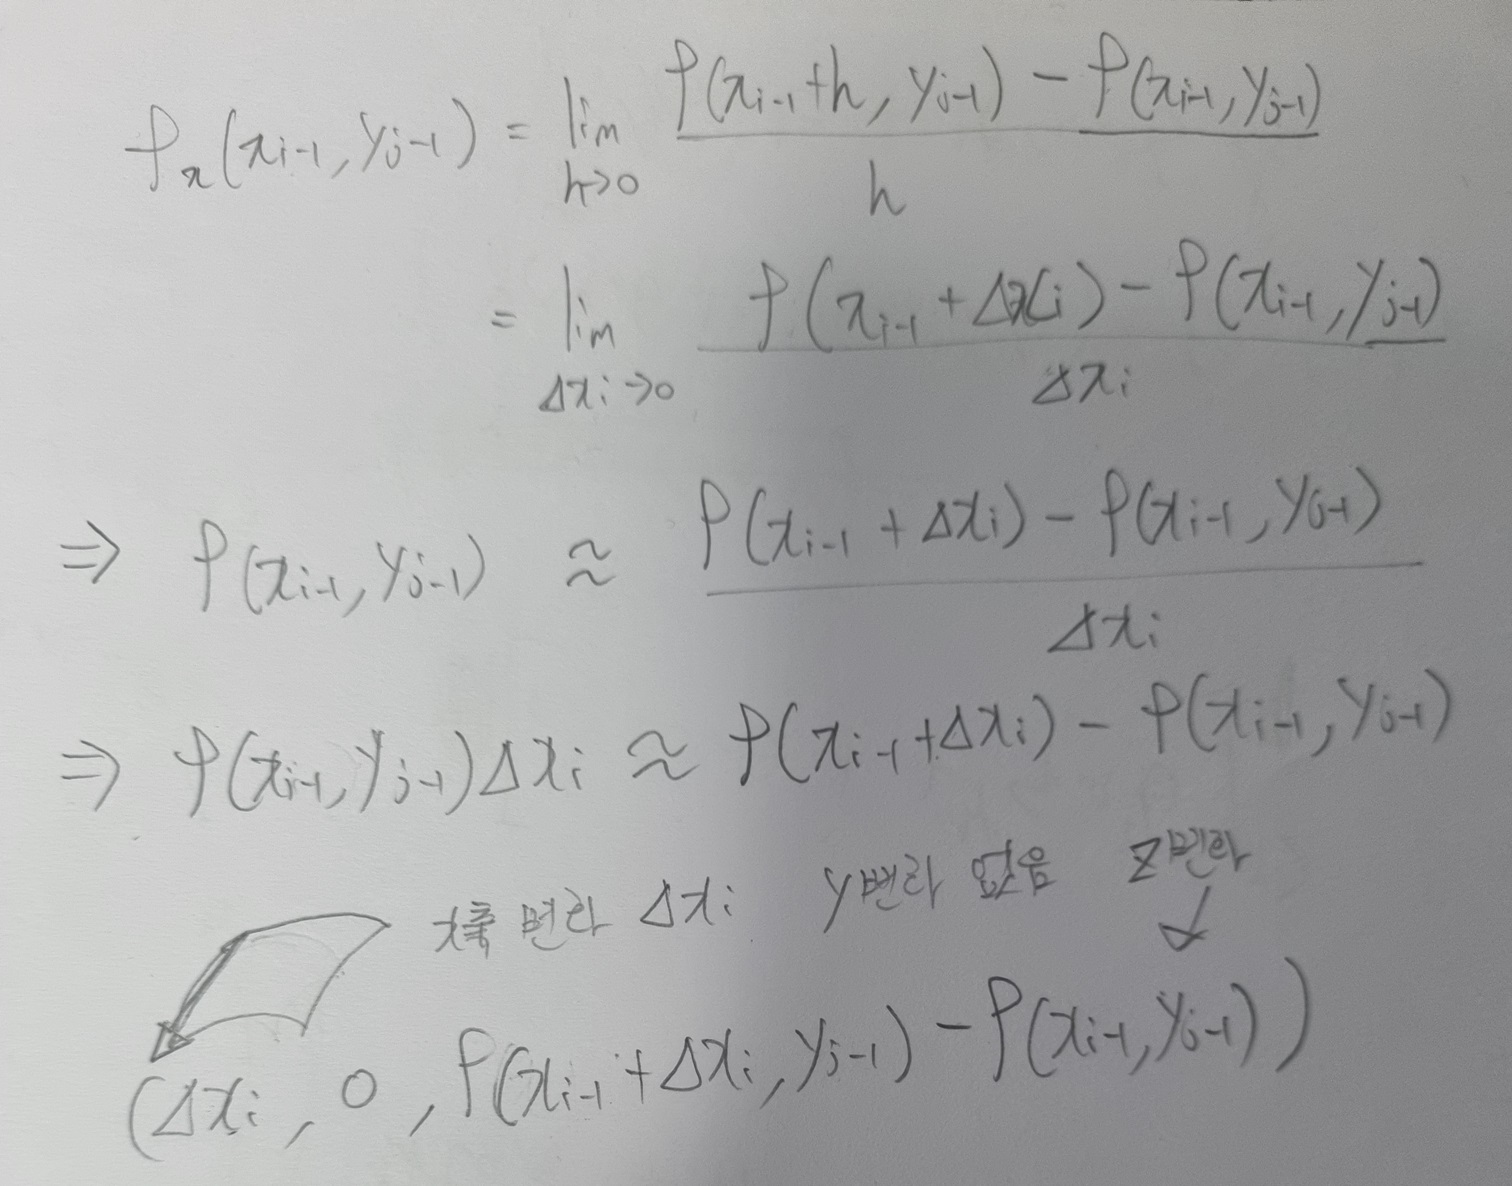 f_x(x_{i-1}, y_{j-1}) = lim_{h→0} \frac{f(x_{i-1}+h, y_{j-1}) - f(x_{i-1}, y_{j-1})}{h}
= lim_{Δx_i→0} \frac{f(x_{i-1}+Δx_i) - f(x_{i-1}, y_{j-1})}{Δx_i}
⇒ f(x_{i-1}, y_{j-1}) ≈ \frac{f(x_{i-1}+Δx_i) - f(x_{i-1}, y_{j-1})}{Δx_i}
⇒ f(x_{i-1}, y_{j-1})Δx_i ≈ f(x_{i-1}+Δx_i) - f(x_{i-1}, y_{j-1})
x축 변화 Δx_i y변화 없음 z변화
(Δx_i, 0, f(x_{i-1}+Δx_i, y_{j-1}) - f(x_{i-1}, y_{j-1}))